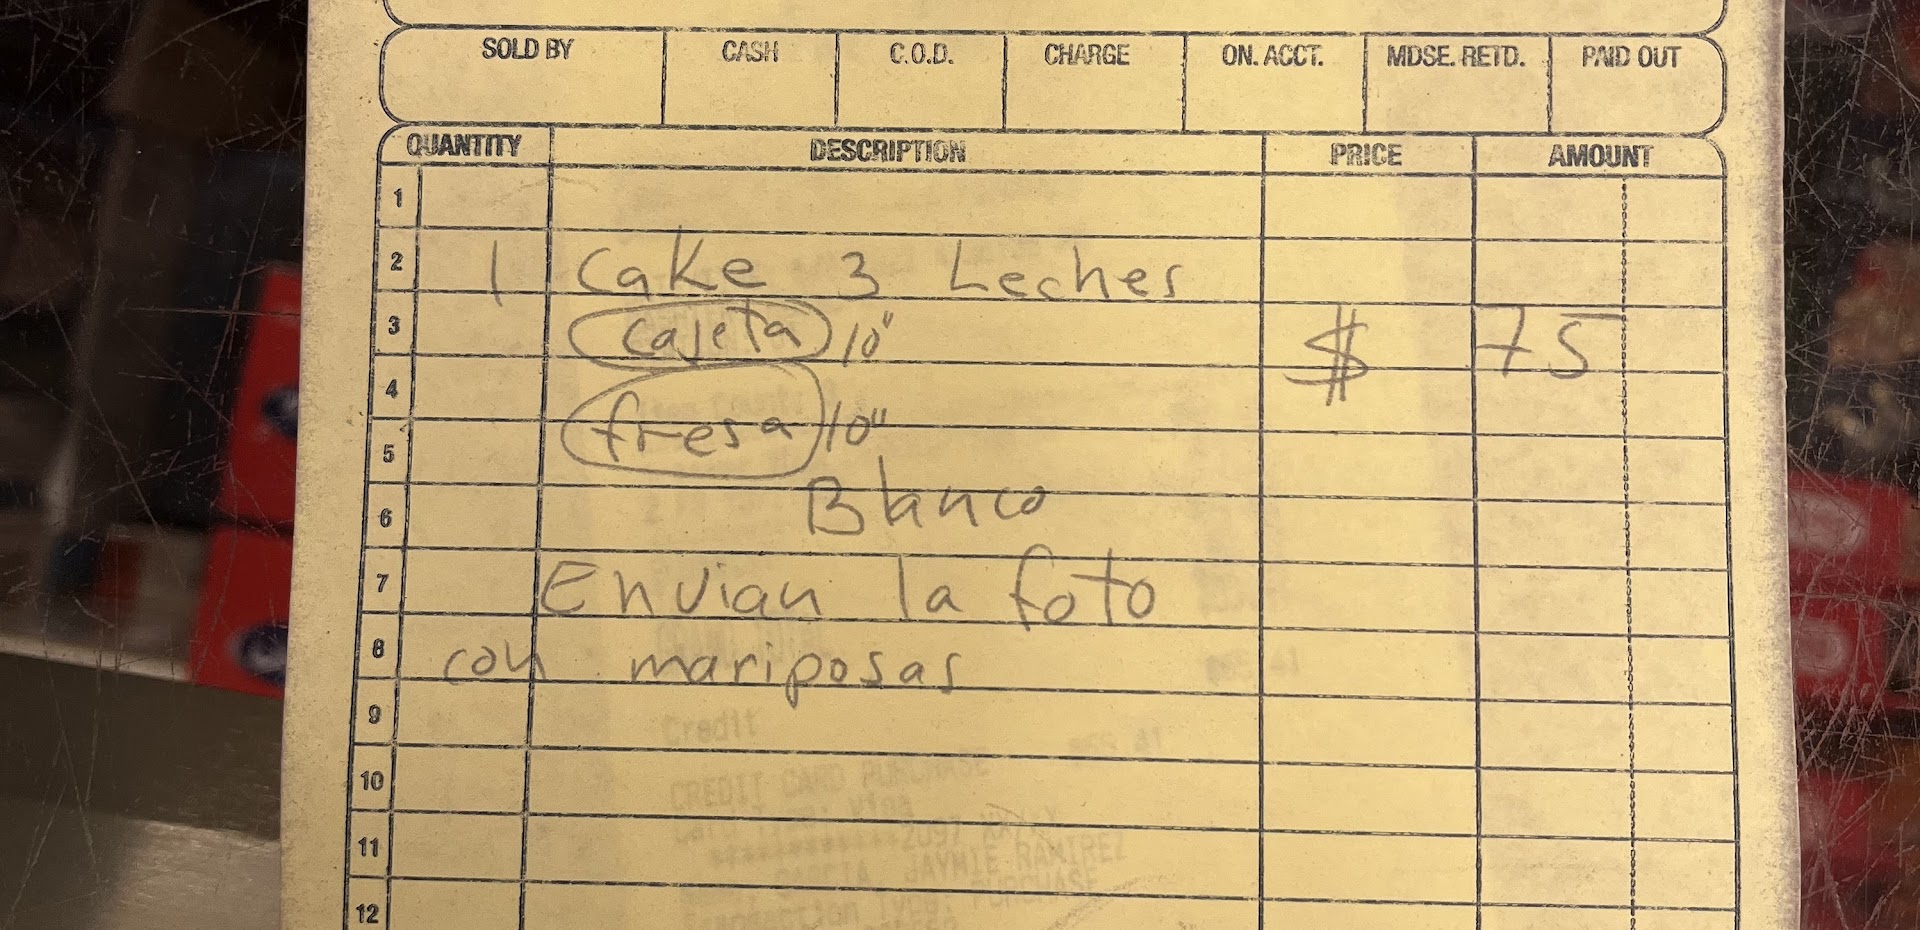 SOLD BY CASH C.O.D. CHARGE ON. ACCT. MDSE. RETD. PAID OUT
QUANTITY DESCRIPTION PRICE AMOUNT
1
2 1 Cake 3 Leches
3 cajeta 10" $ 75
4
fresa 10"
5
6 Blanco
7 Envian la foto
8 con mariposas
9
Credit
10 CREDIT CARD PURCHASE
11
JAYMIE RAMIREZ
12 Type: PURCHASE